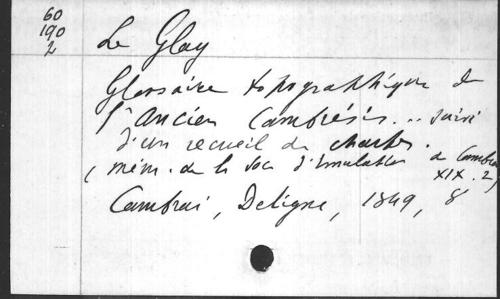 60
190
2
Le Glay
Glossaire topographique de
l'Ancien Cambrésis... suivi
d'un recueil de chartes.
(mém. de la Soc d'Emulation de Cambrai
XIX. 2)
Cambrai, Deligne, 1849, 8°